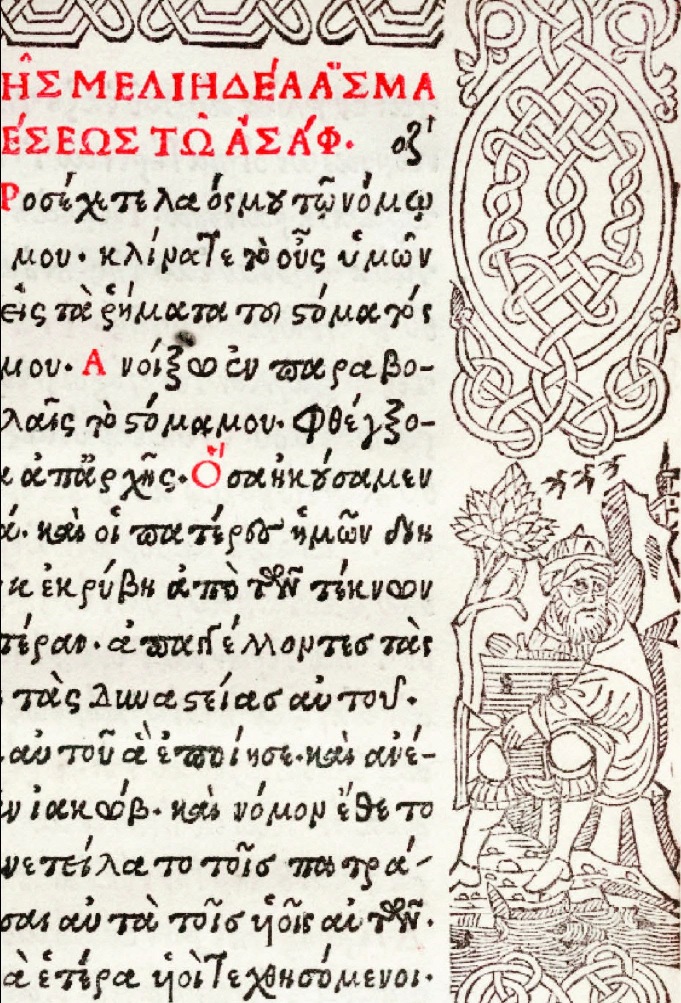 ῆΣ ΜΕΛΙΗΔΈΑ ἌΣΜΑ
ΈΣΕΩΣ ΤΩ͂ ἈΣΆΦ· οζʹ
Ροσέχετε λαόςμου τῶν νόμω
μου· κλίνατε τὸ οὖς ὑμῶν
εἰς τὰ ῥήματα του στόματός
μου· Ανοίξω ἐν παραβο-
λαῖς τὸ στόμαμου· Φθέγξο-
ι ἀπἀρχῆς· Ὅσα ἠκούσαμεν
ά· καὶ οἱ πατέρες ἡμῶν διη
κ ἐκρύβη ἀπὸ τῶν τέκνων
τέραν· ἀπαγγέλλοντες τὰς
τὰς δυναστείας αὐτοῦ·
αὐτοῦ ἃ ἐποίησε· καὶ ἀνέ-
ν ἰακώβ· καὶ νόμον ἔθετο
νετείλατο τοῖς πατρά-
σαι αὐτὰ τοῖς υἱοῖς αὐτῶν·
ὰ ἑτέρα υἱοὶ τεχθησόμενοι·